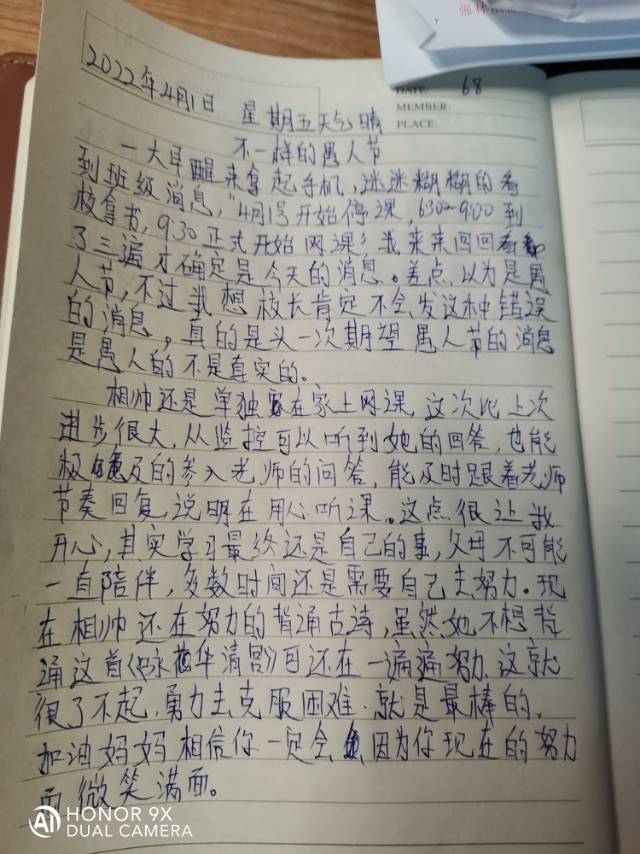 强体
DATE: 68
MEMBER:
PLACE:
2022年4月1日 星期五天气晴
不一样的愚人节
一大早醒来拿起手机,迷迷糊糊的看
到班级消息,“4月1号开始停课,630~9:00到
校拿书,9:30正式开始网课”我来来回回看
了三遍才确定是今天的消息。差点以为是愚
人节,不过我想校长肯定不会发这种错误
的消息,真的是头一次期望愚人节的消息
是愚人的不是真实的。
相帅还是单独在家上网课,这次比上次
进步很大,从监控可以听到她的回答,也能
极及的参入老师的问答,能及时跟着老师
节奏回复,说明在用心听课。这点很让我
开心,其实学习最终还是自己的事,父母不可能
一直陪伴,多数时间还是需要自己去努力。现
在相帅还在努力的背诵古诗,虽然她不想背
诵这首《咏华清宫》可还在一遍遍努力.这就
很了不起,勇力去克服困难.就是最棒的,
加油妈妈相信你一定会因为你现在的努力
而微笑满面。
HONOR 9X
AI DUAL CAMERA